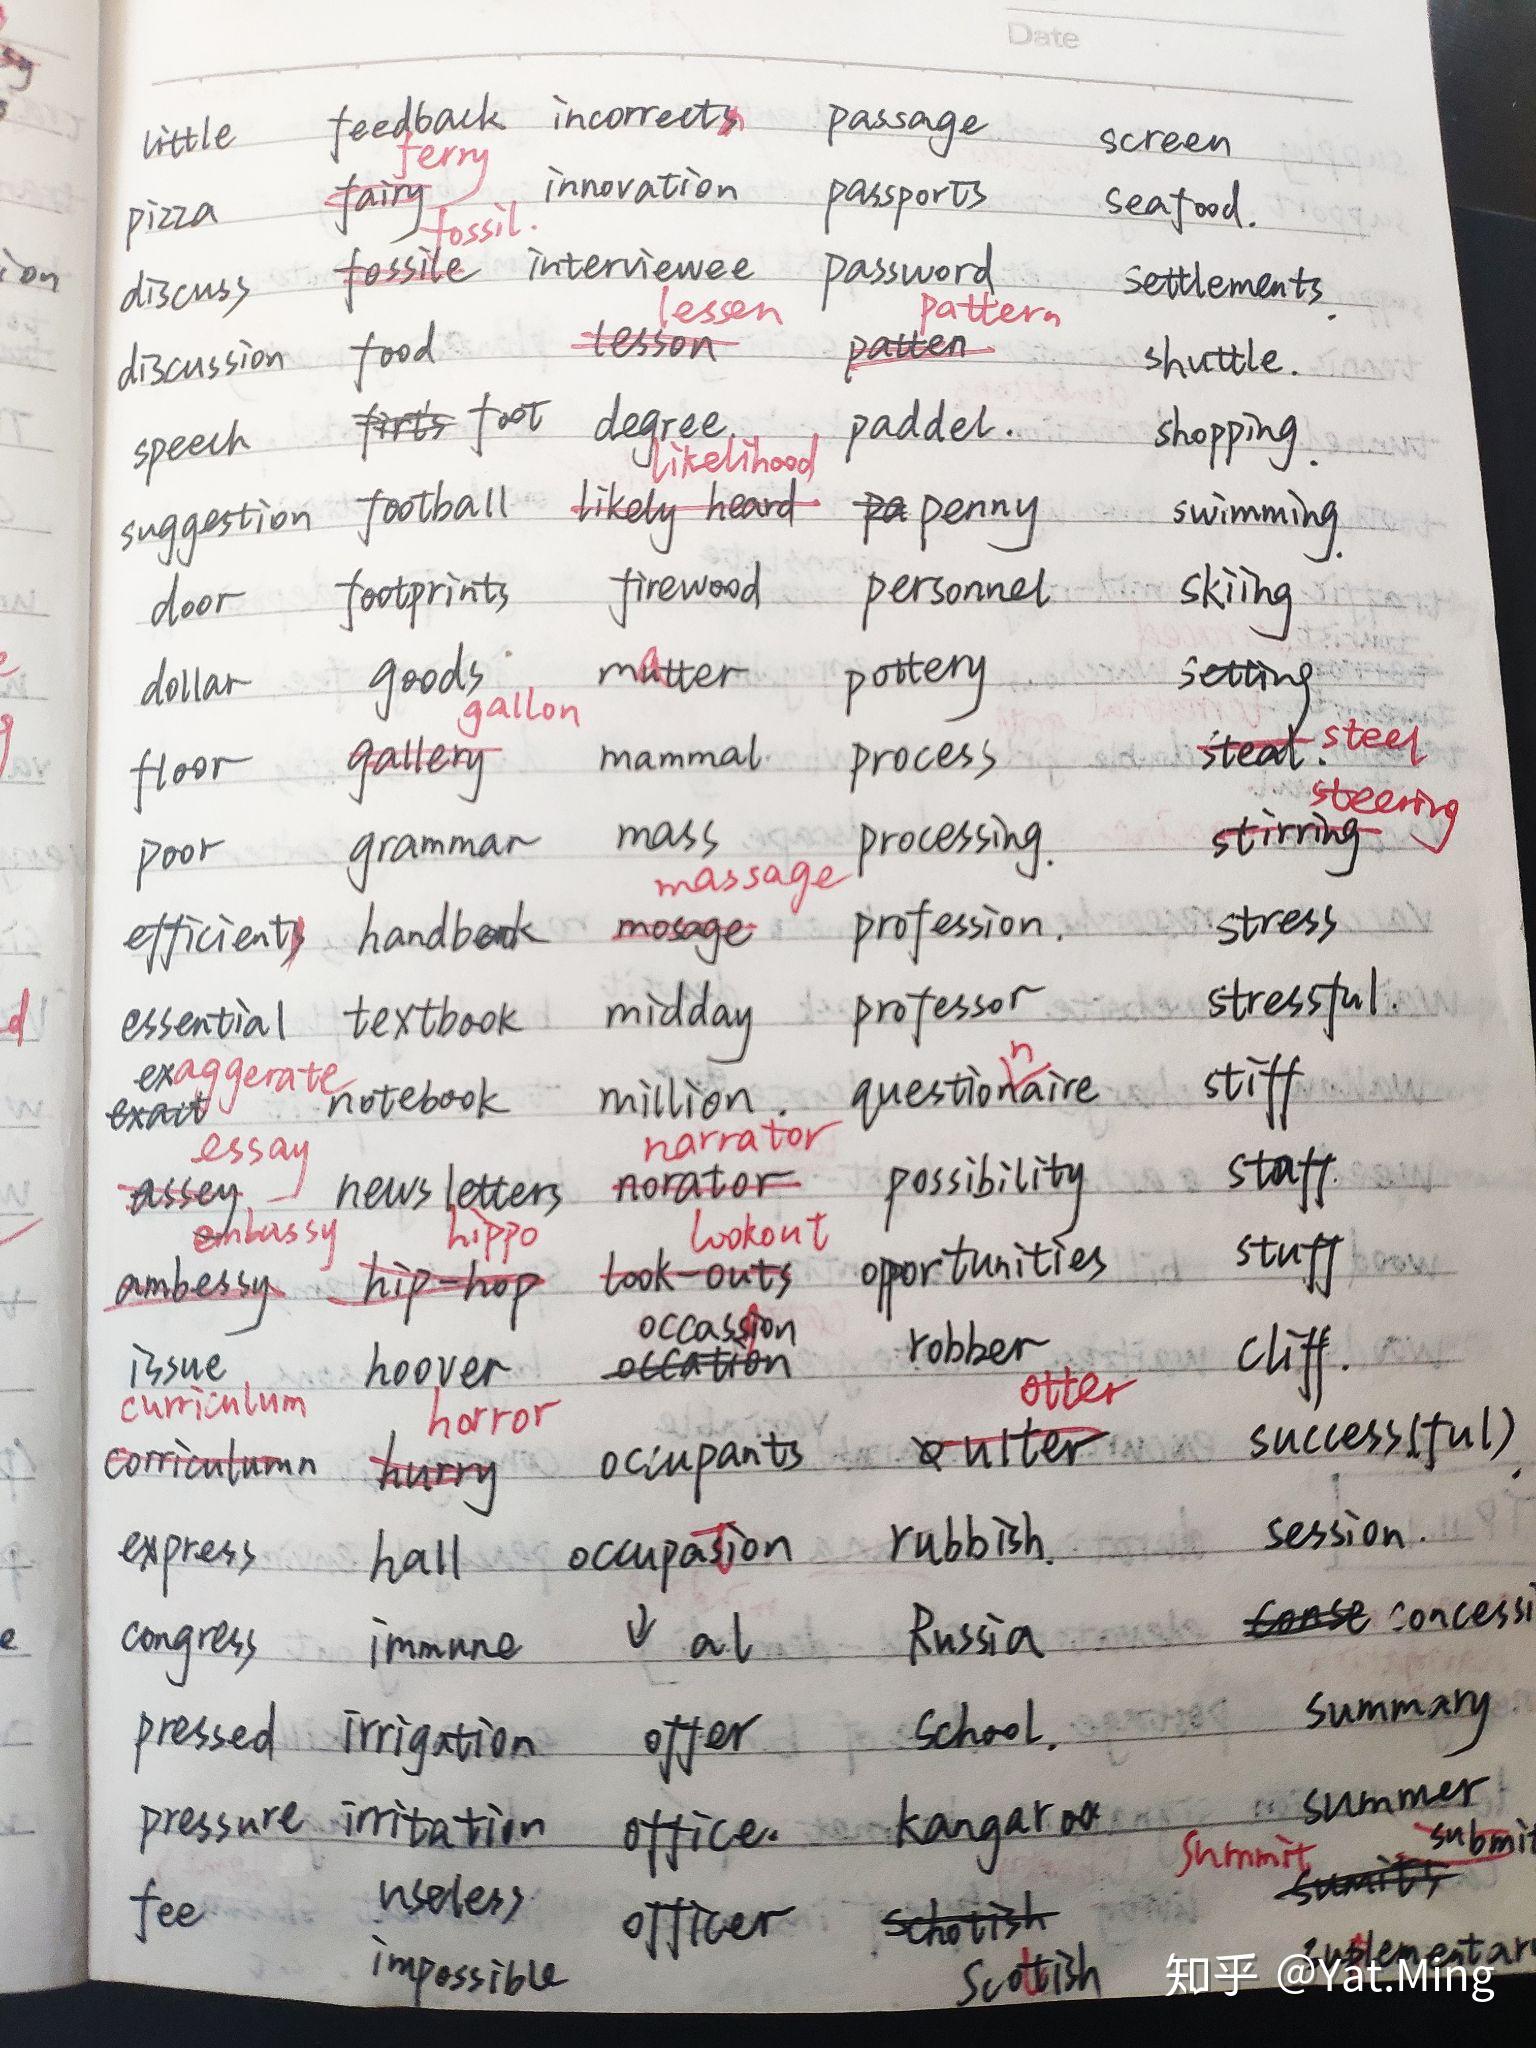 Date
little feedback incorrects passage screen
ferry
pizza fairy innovation passports seafood.
fossil.
discuss fossile interviewee password settlements.
lessen pattern
discussion food lesson patten shuttle.
speech firts foot degree. paddel. shopping.
likelihood
suggestion football likely heard pa penny swimming.
door footprints firewood personnel skiing
dollar goods matter pottery setting
gallon
floor gallery mammal process steal. steel
steering
poor grammar mass processing. stirring
massage
efficient handbook mosage profession. stress
essential textbook midday professor stressful.
exaggerate n
exact notebook million. questionaire stiff
essay narrator
assey newsletters norator possibility staff.
embassy hippo lookout
ambessy hip-hop look-outs opportunities stuff
occassion
issue hoover occation robber cliff.
curriculum horror otter
corriculumn hurry occupants oulter success(ful).
express hall occupation rubbish. session.
congress immune ↓ al Russia conse concessi
pressed irrigation offer school. summary
pressure irritation office. kangaroo summer
summit submit
fee useless officer schotish sumits
impossible Scottish suplementary
知乎 @Yat.Ming